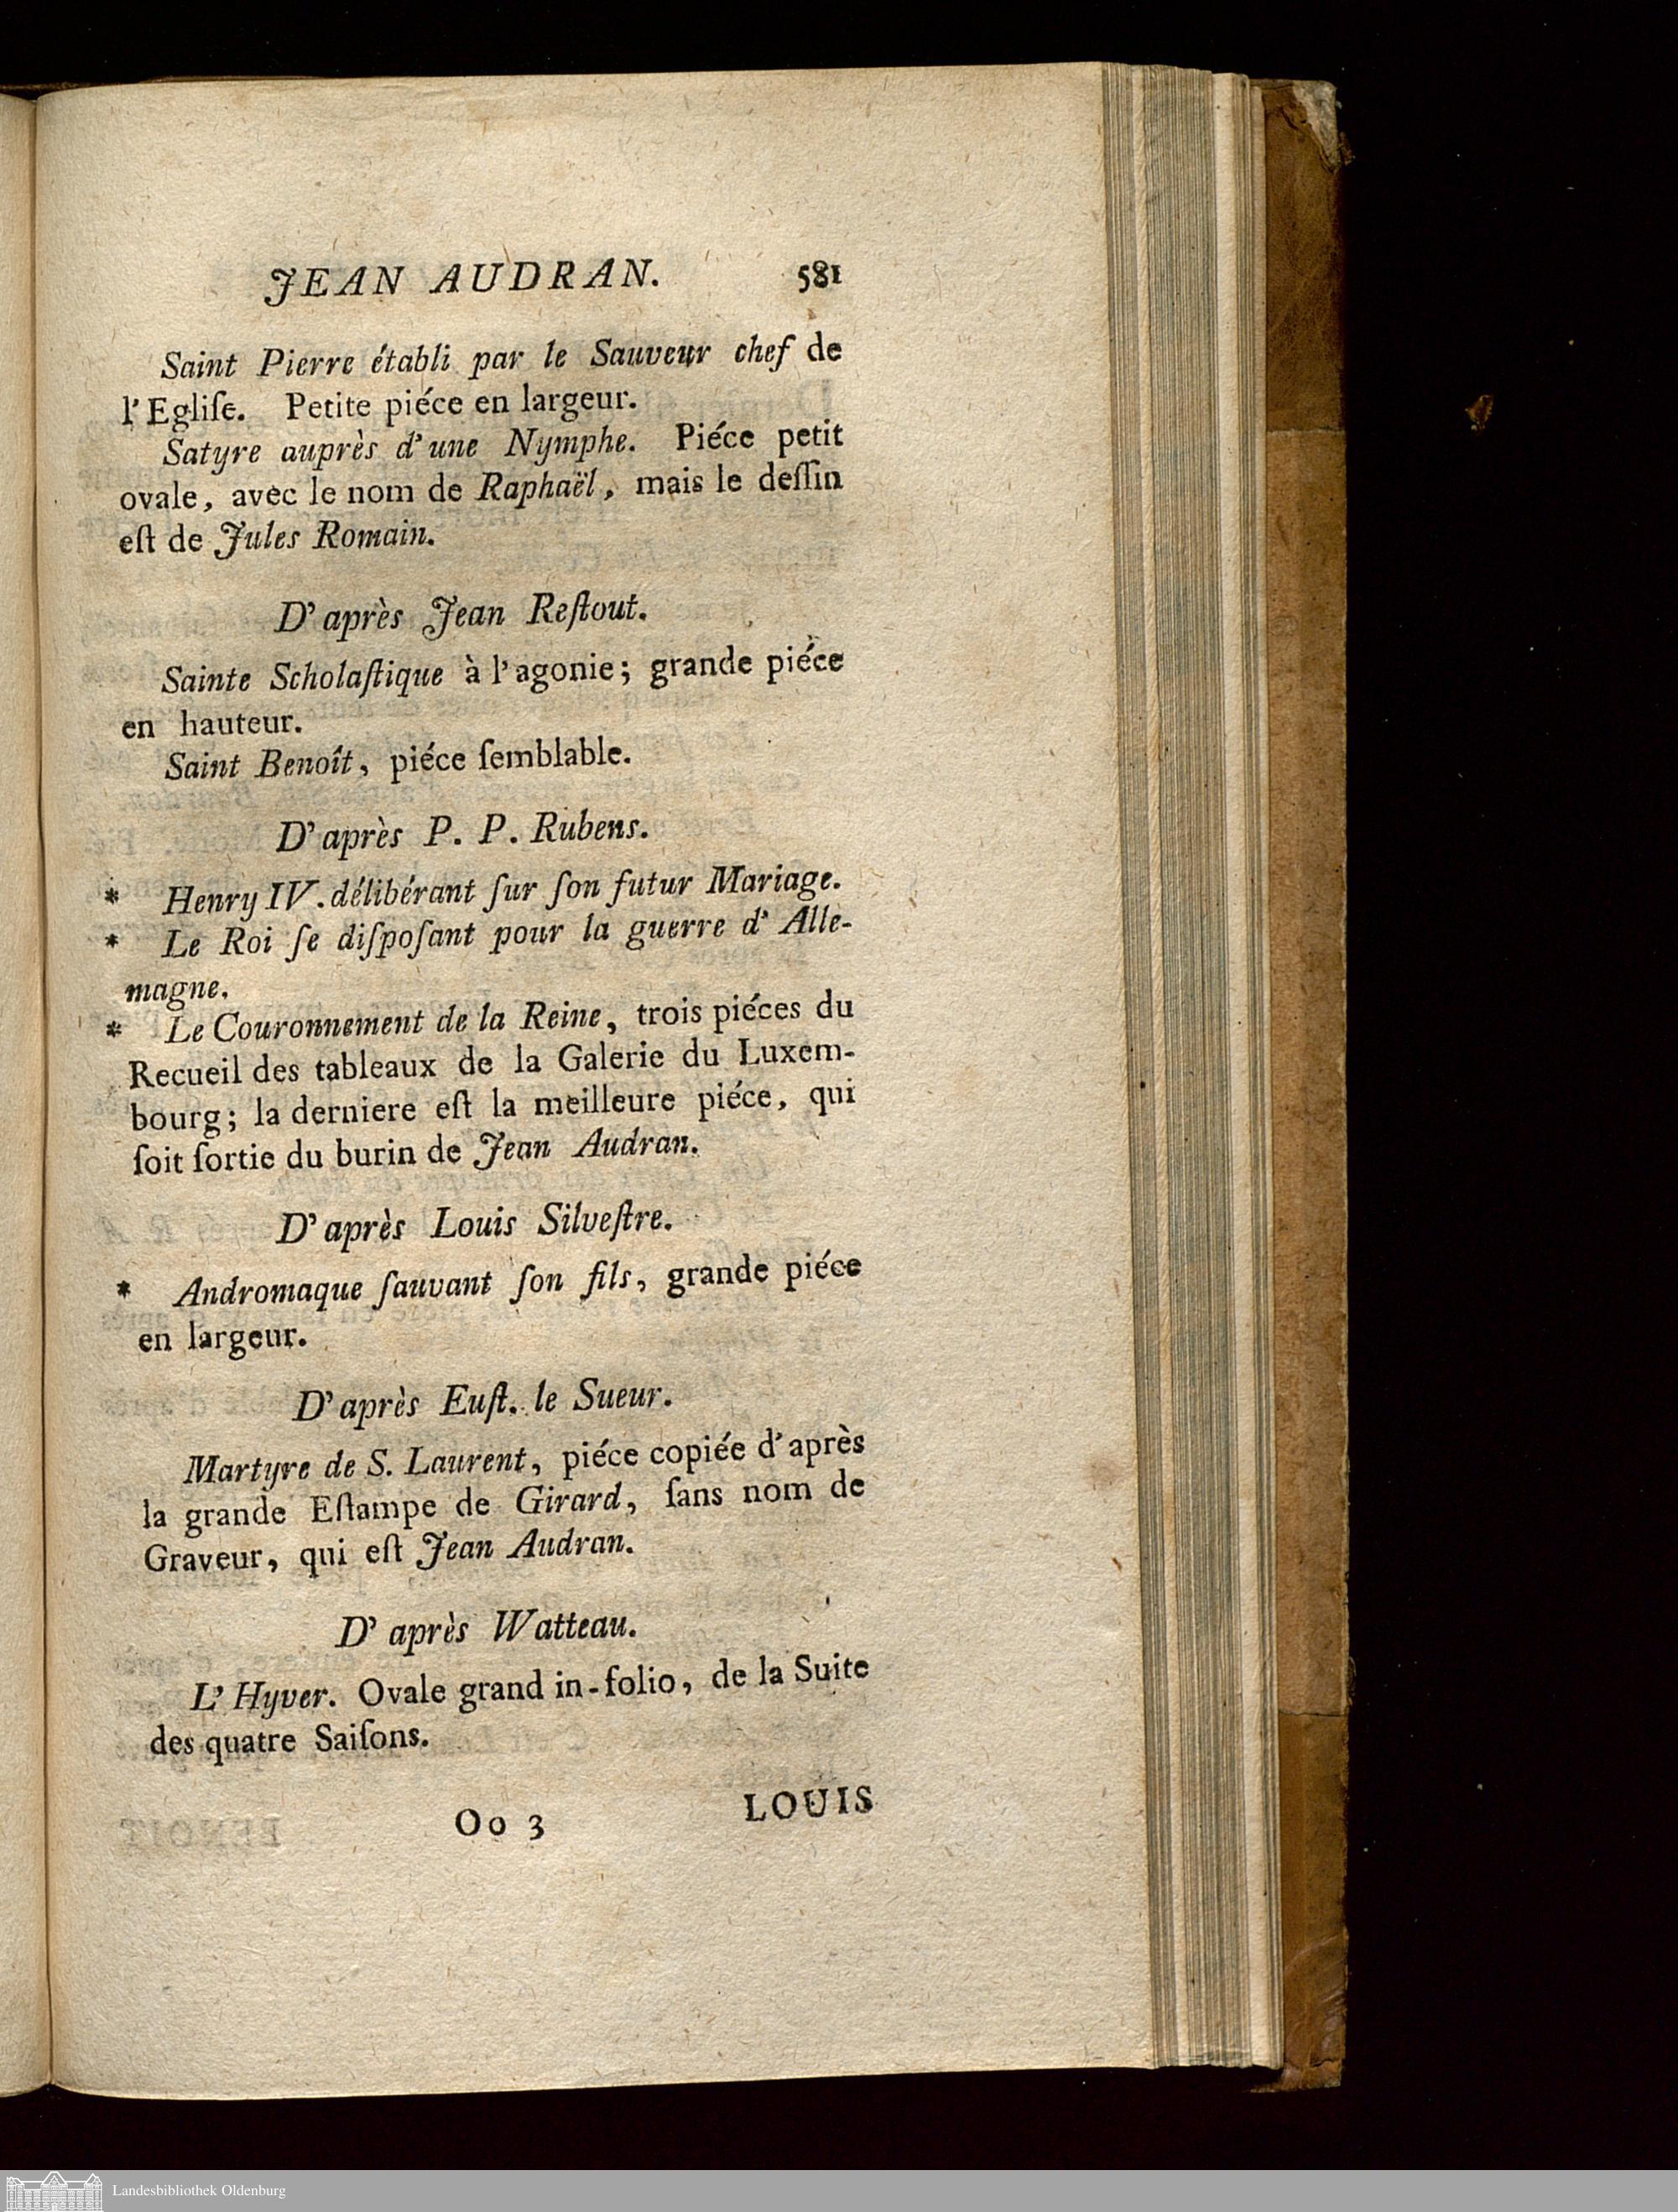 JEAN AUDRAN. 581
Saint Pierre établi par le Sauveur chef de
l'Egliſe. Petite piéce en largeur.
Satyre auprès d'une Nymphe. Piéce petit
ovale, avec le nom de Raphaël, mais le deſſin
eſt de Jules Romain.
D'après Jean Reſtout.
Sainte Scholaſtique à l'agonie; grande piéce
en hauteur.
Saint Benoît, piéce ſemblable.
D'après P. P. Rubens.
* Henry IV. délibérant ſur ſon futur Mariage.
* Le Roi ſe diſpoſant pour la guerre d'Alle-
magne.
* Le Couronnement de la Reine, trois piéces du
Recueil des tableaux de la Galerie du Luxem-
bourg; la derniere eſt la meilleure piéce, qui
ſoit ſortie du burin de Jean Audran.
D'après Louis Silveſtre.
* Andromaque ſauvant ſon fils, grande piéce
en largeur.
D'après Euſt. le Sueur.
Martyre de S. Laurent, piéce copiée d'après
la grande Eſtampe de Girard, ſans nom de
Graveur, qui eſt Jean Audran.
D'après Watteau.
L'Hyver. Ovale grand in-folio, de la Suite
des quatre Saiſons.
Oo 3 LOUIS
Landesbibliothek Oldenburg